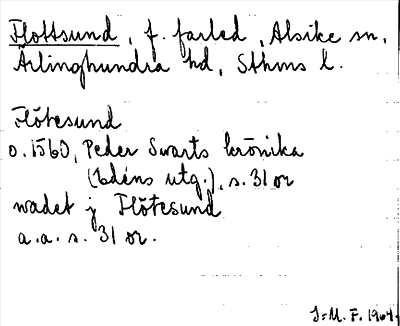 Flottsund, f. farled, Alsike sn,
Ärlinghundra hd, Sthms l.
Flötesund
o. 1560, Peder Swarts krönika
(Edéns utg.), s. 31 or
wadet j Flötesund
a.a. s. 31 or.
J-M. F. 1904